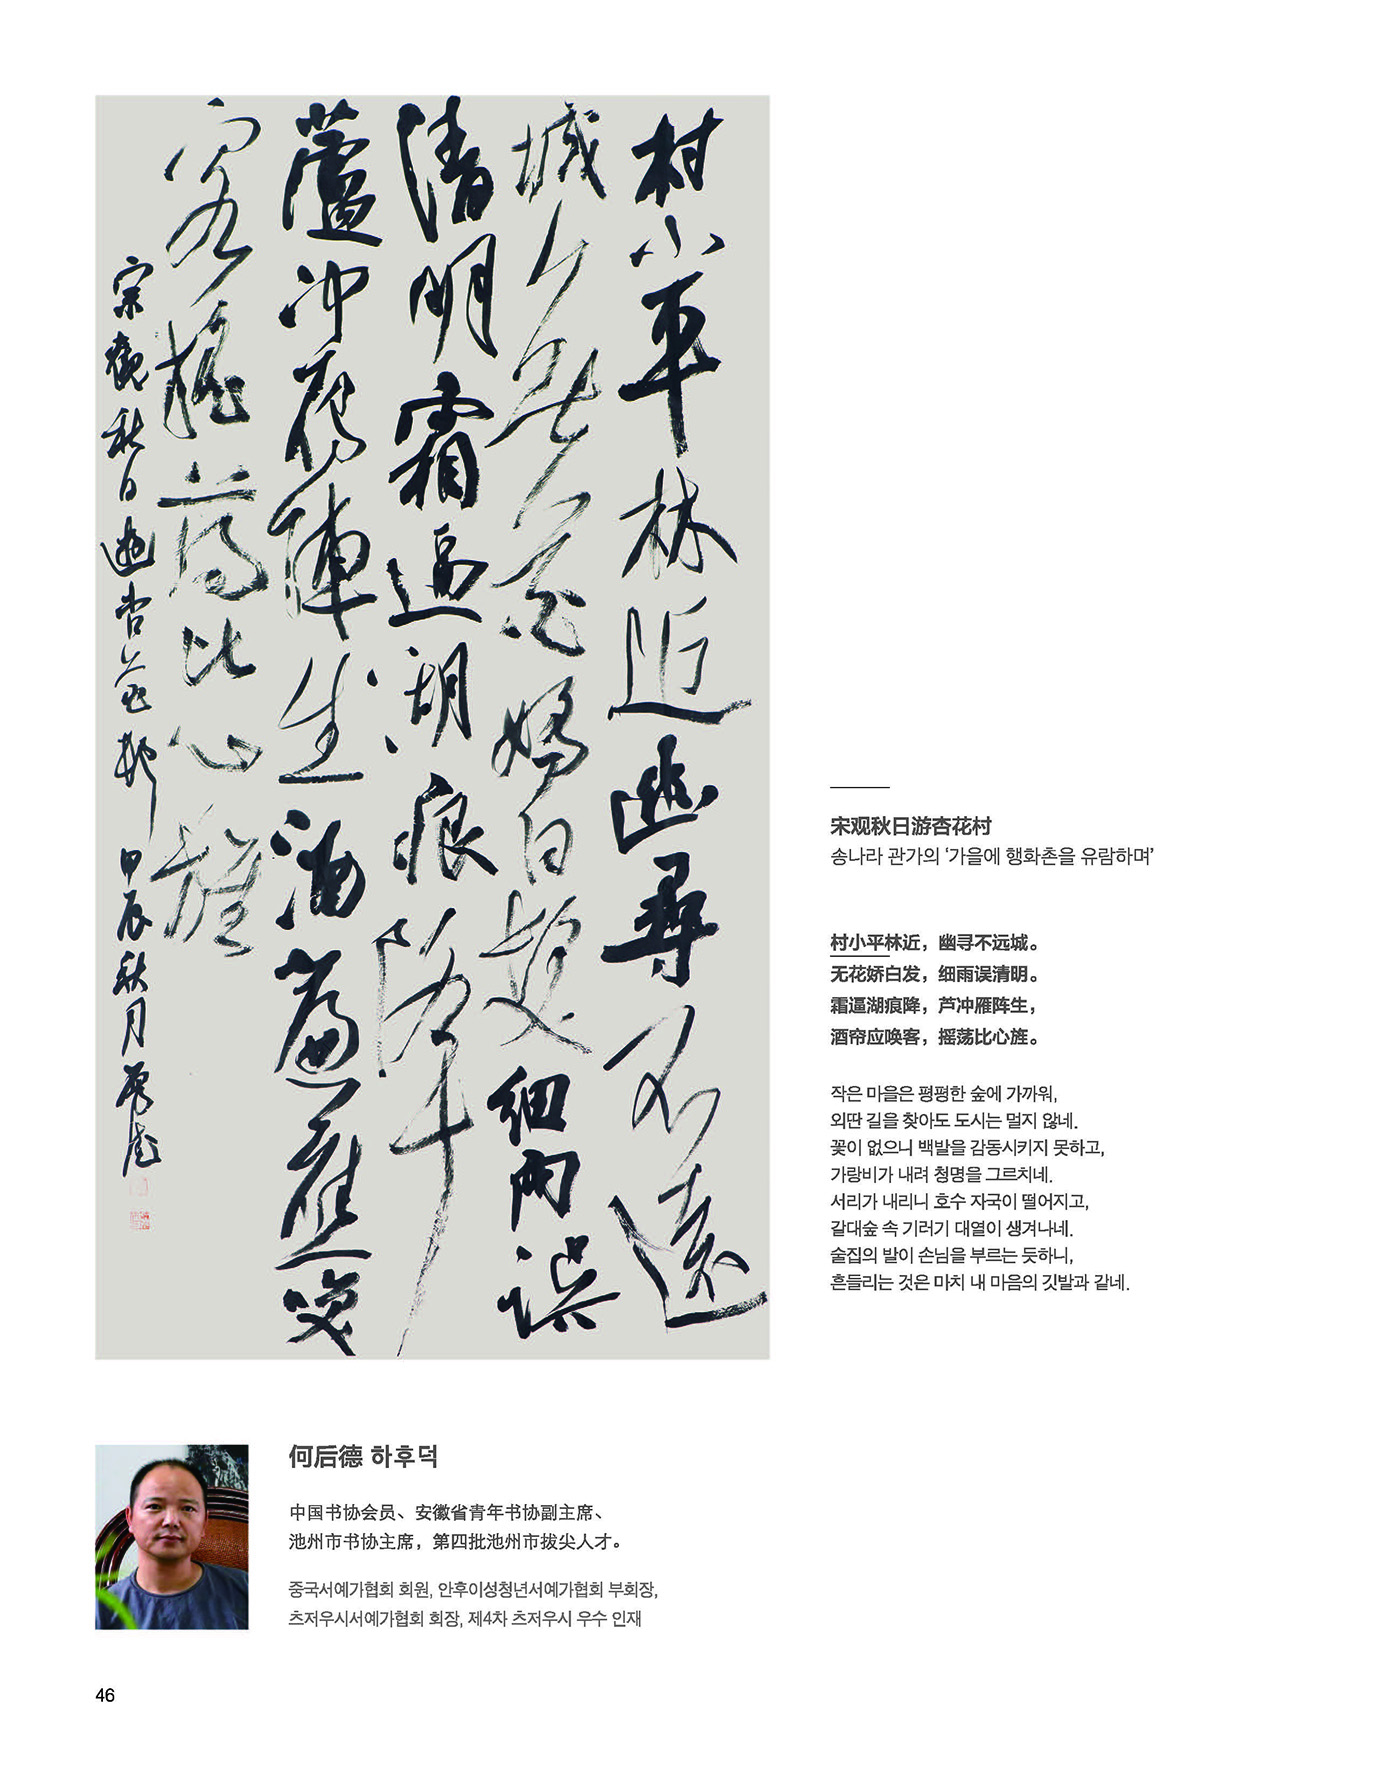 村小平林近幽尋不遠
城無花嬌白髮細雨誤
清明霜逼湖痕降
蘆冲雁陣生酒簾應喚
客搖蕩比心旌
宗觀秋日遊杏花邨 甲辰秋月厚德
宋观秋日游杏花村
송나라 관가의 ‘가을에 행화촌을 유람하며’
村小平林近，幽寻不远城。
无花娇白发，细雨误清明。
霜逼湖痕降，芦冲雁阵生，
酒帘应唤客，摇荡比心旌。
작은 마을은 평평한 숲에 가까워,
외딴 길을 찾아도 도시는 멀지 않네.
꽃이 없으니 백발을 감동시키지 못하고,
가랑비가 내려 청명을 그르치네.
서리가 내리니 호수 자국이 떨어지고,
갈대숲 속 기러기 대열이 생겨나네.
술집의 발이 손님을 부르는 듯하니,
흔들리는 것은 마치 내 마음의 깃발과 같네.
何后德 하후덕
中国书协会员、安徽省青年书协副主席、
池州市书协主席，第四批池州市拔尖人才。
중국서예가협회 회원, 안후이성청년서예가협회 부회장,
츠저우시서예가협회 회장, 제4차 츠저우시 우수 인재
46